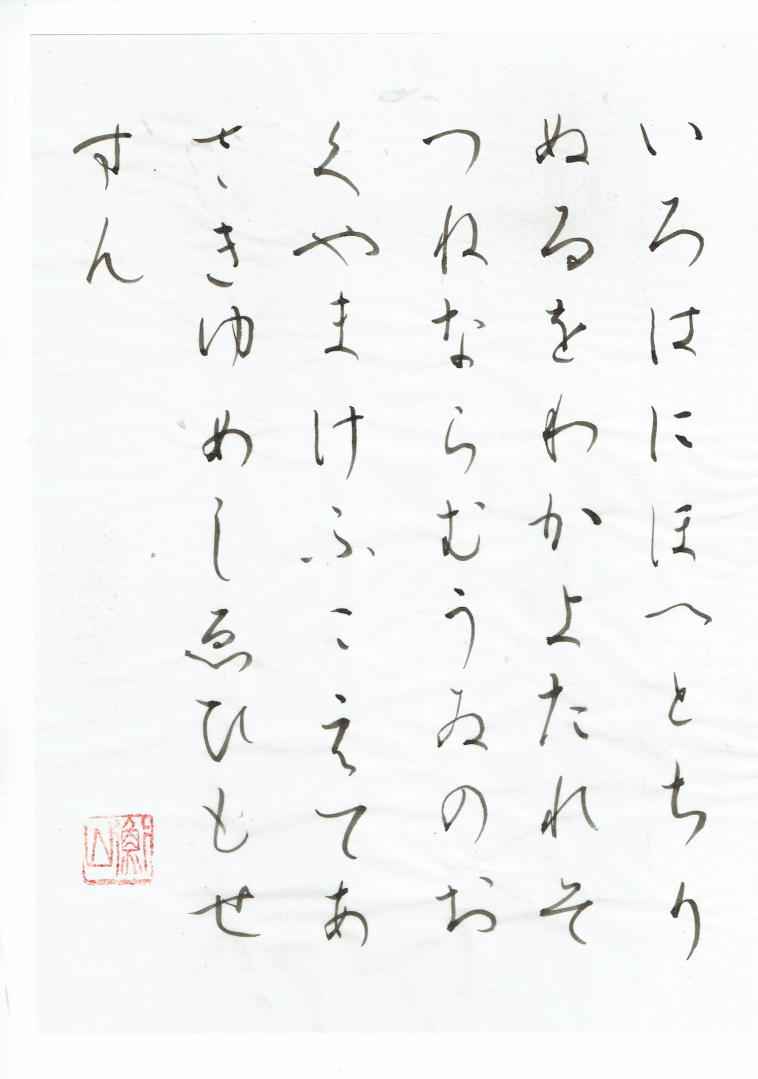 いろはにほへとちり
ぬるをわかよたれそ
つねならむうゐのお
くやまけふこえてあ
さきゆめしゑひもせ
すん